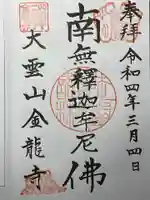 奉拜 令和四年三月四日
南無釋迦牟尼佛
大雲山金龍寺